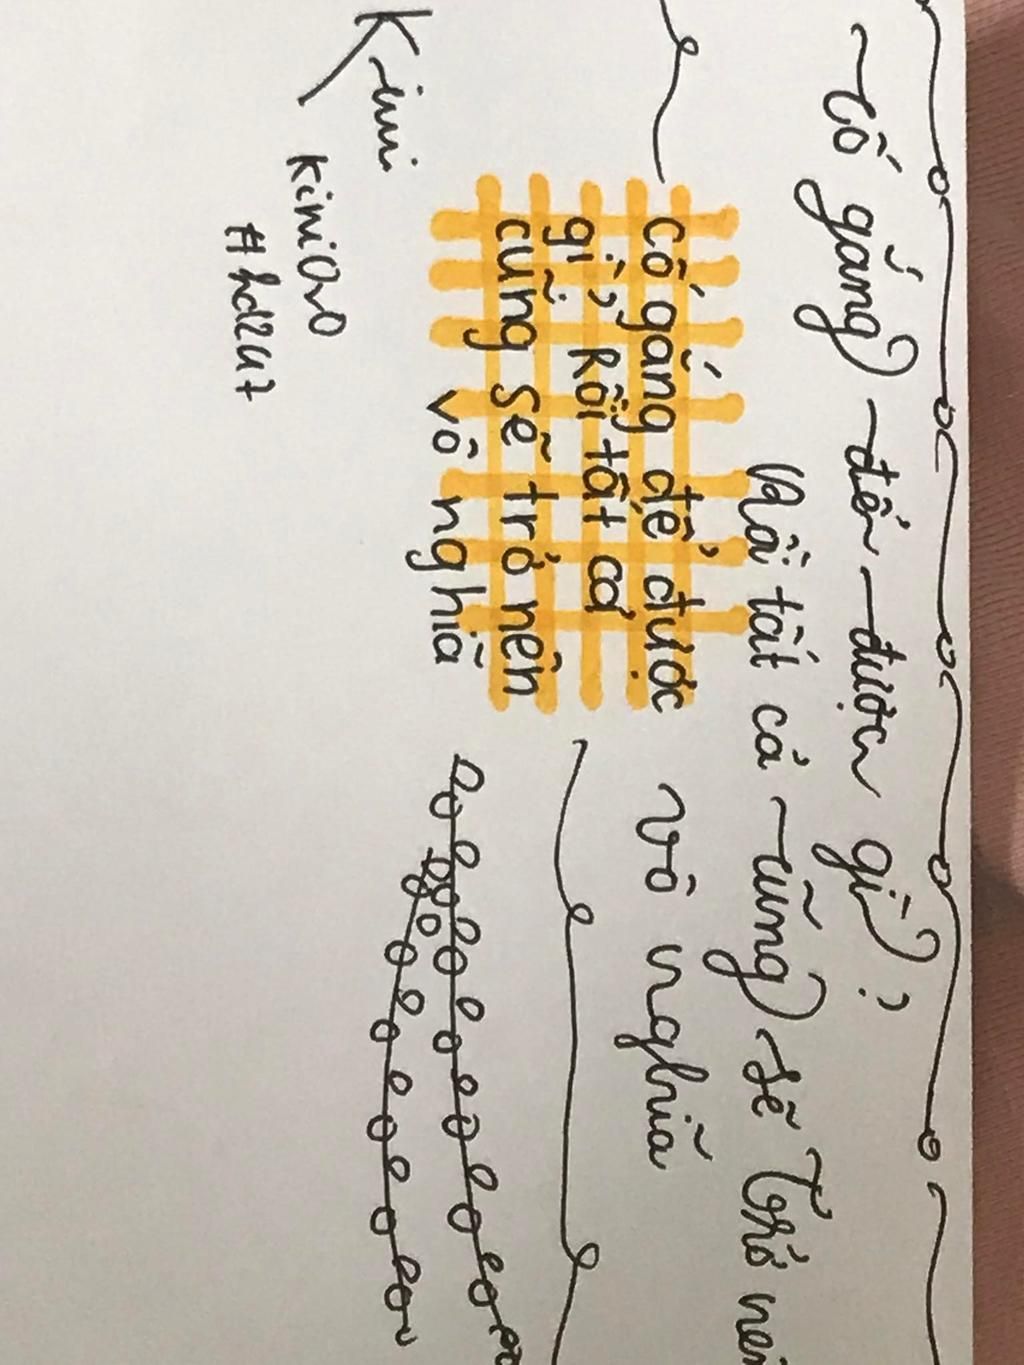 Cố gắng đến được gì?
Rồi tất cả cũng sẽ trở nên
vô nghĩa
cố gắng để được
gì, Rồi tất cả
cũng sẽ trở nên
vô nghĩa
Kini
kini0v0
#hd2ut